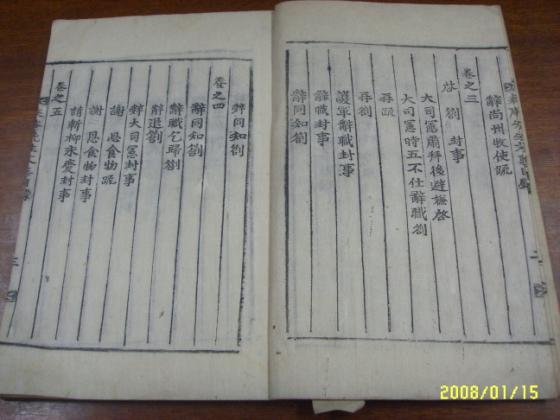 辭尙州牧使疏
卷之三
啓 劄 封事
大司憲肅拜後避嫌啓
大司憲時五不仕辭職劄
再疏
再劄
護軍辭職封事
辭職封事
辭同知劄
辭同知劄
卷之四
辭同知劄
辭職乞歸劄
辭退劄
辭大司憲封事
謝 恩食物疏
謝 恩食物封事
請斬柳永慶封事
卷之五
2008/01/15